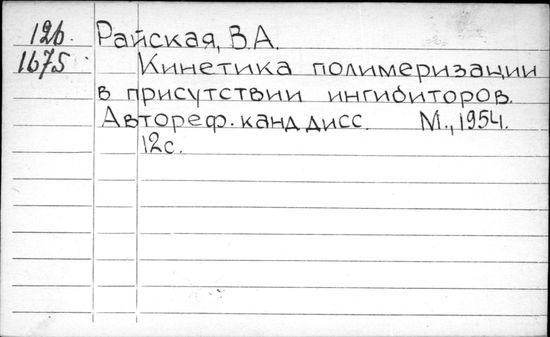 126. Райская, В.А.
1675. Кинетика полимеризации
в присутствии ингибиторов.
Автореф. канд дисс. М., 1954.
12с.